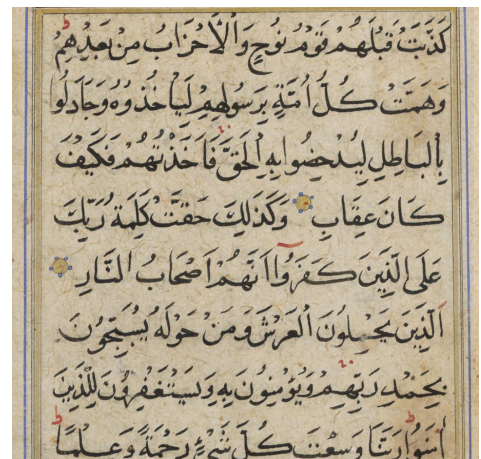 كَذَّبَتْ قَبْلَهُمْ قَوْمُ نُوْحٍ وَالْاَحْزَابُ مِنْ بَعْدِهِمْ
وَهَمَّتْ كُلُّ اُمَّةٍ بِرَسُوْلِهِمْ لِيَأْخُذُوْهُ وَجَادَلُوْا
بِالْبَاطِلِ لِيُدْحِضُوْا بِهِ الْحَقَّ فَاَخَذْتُهُمْ فَكَيْفَ
كَانَ عِقَابِ وَكَذٰلِكَ حَقَّتْ كَلِمَةُ رَبِّكَ
عَلَى الَّذِيْنَ كَفَرُوْا اَنَّهُمْ اَصْحَابُ النَّارِ
اَلَّذِيْنَ يَحْمِلُوْنَ الْعَرْشَ وَمَنْ حَوْلَهُ يُسَبِّحُوْنَ
بِحَمْدِ رَبِّهِمْ وَيُؤْمِنُوْنَ بِهِ وَيَسْتَغْفِرُوْنَ لِلَّذِيْنَ
اٰمَنُوْا رَبَّنَا وَسِعْتَ كُلَّ شَيْءٍ رَحْمَةً وَعِلْمًا